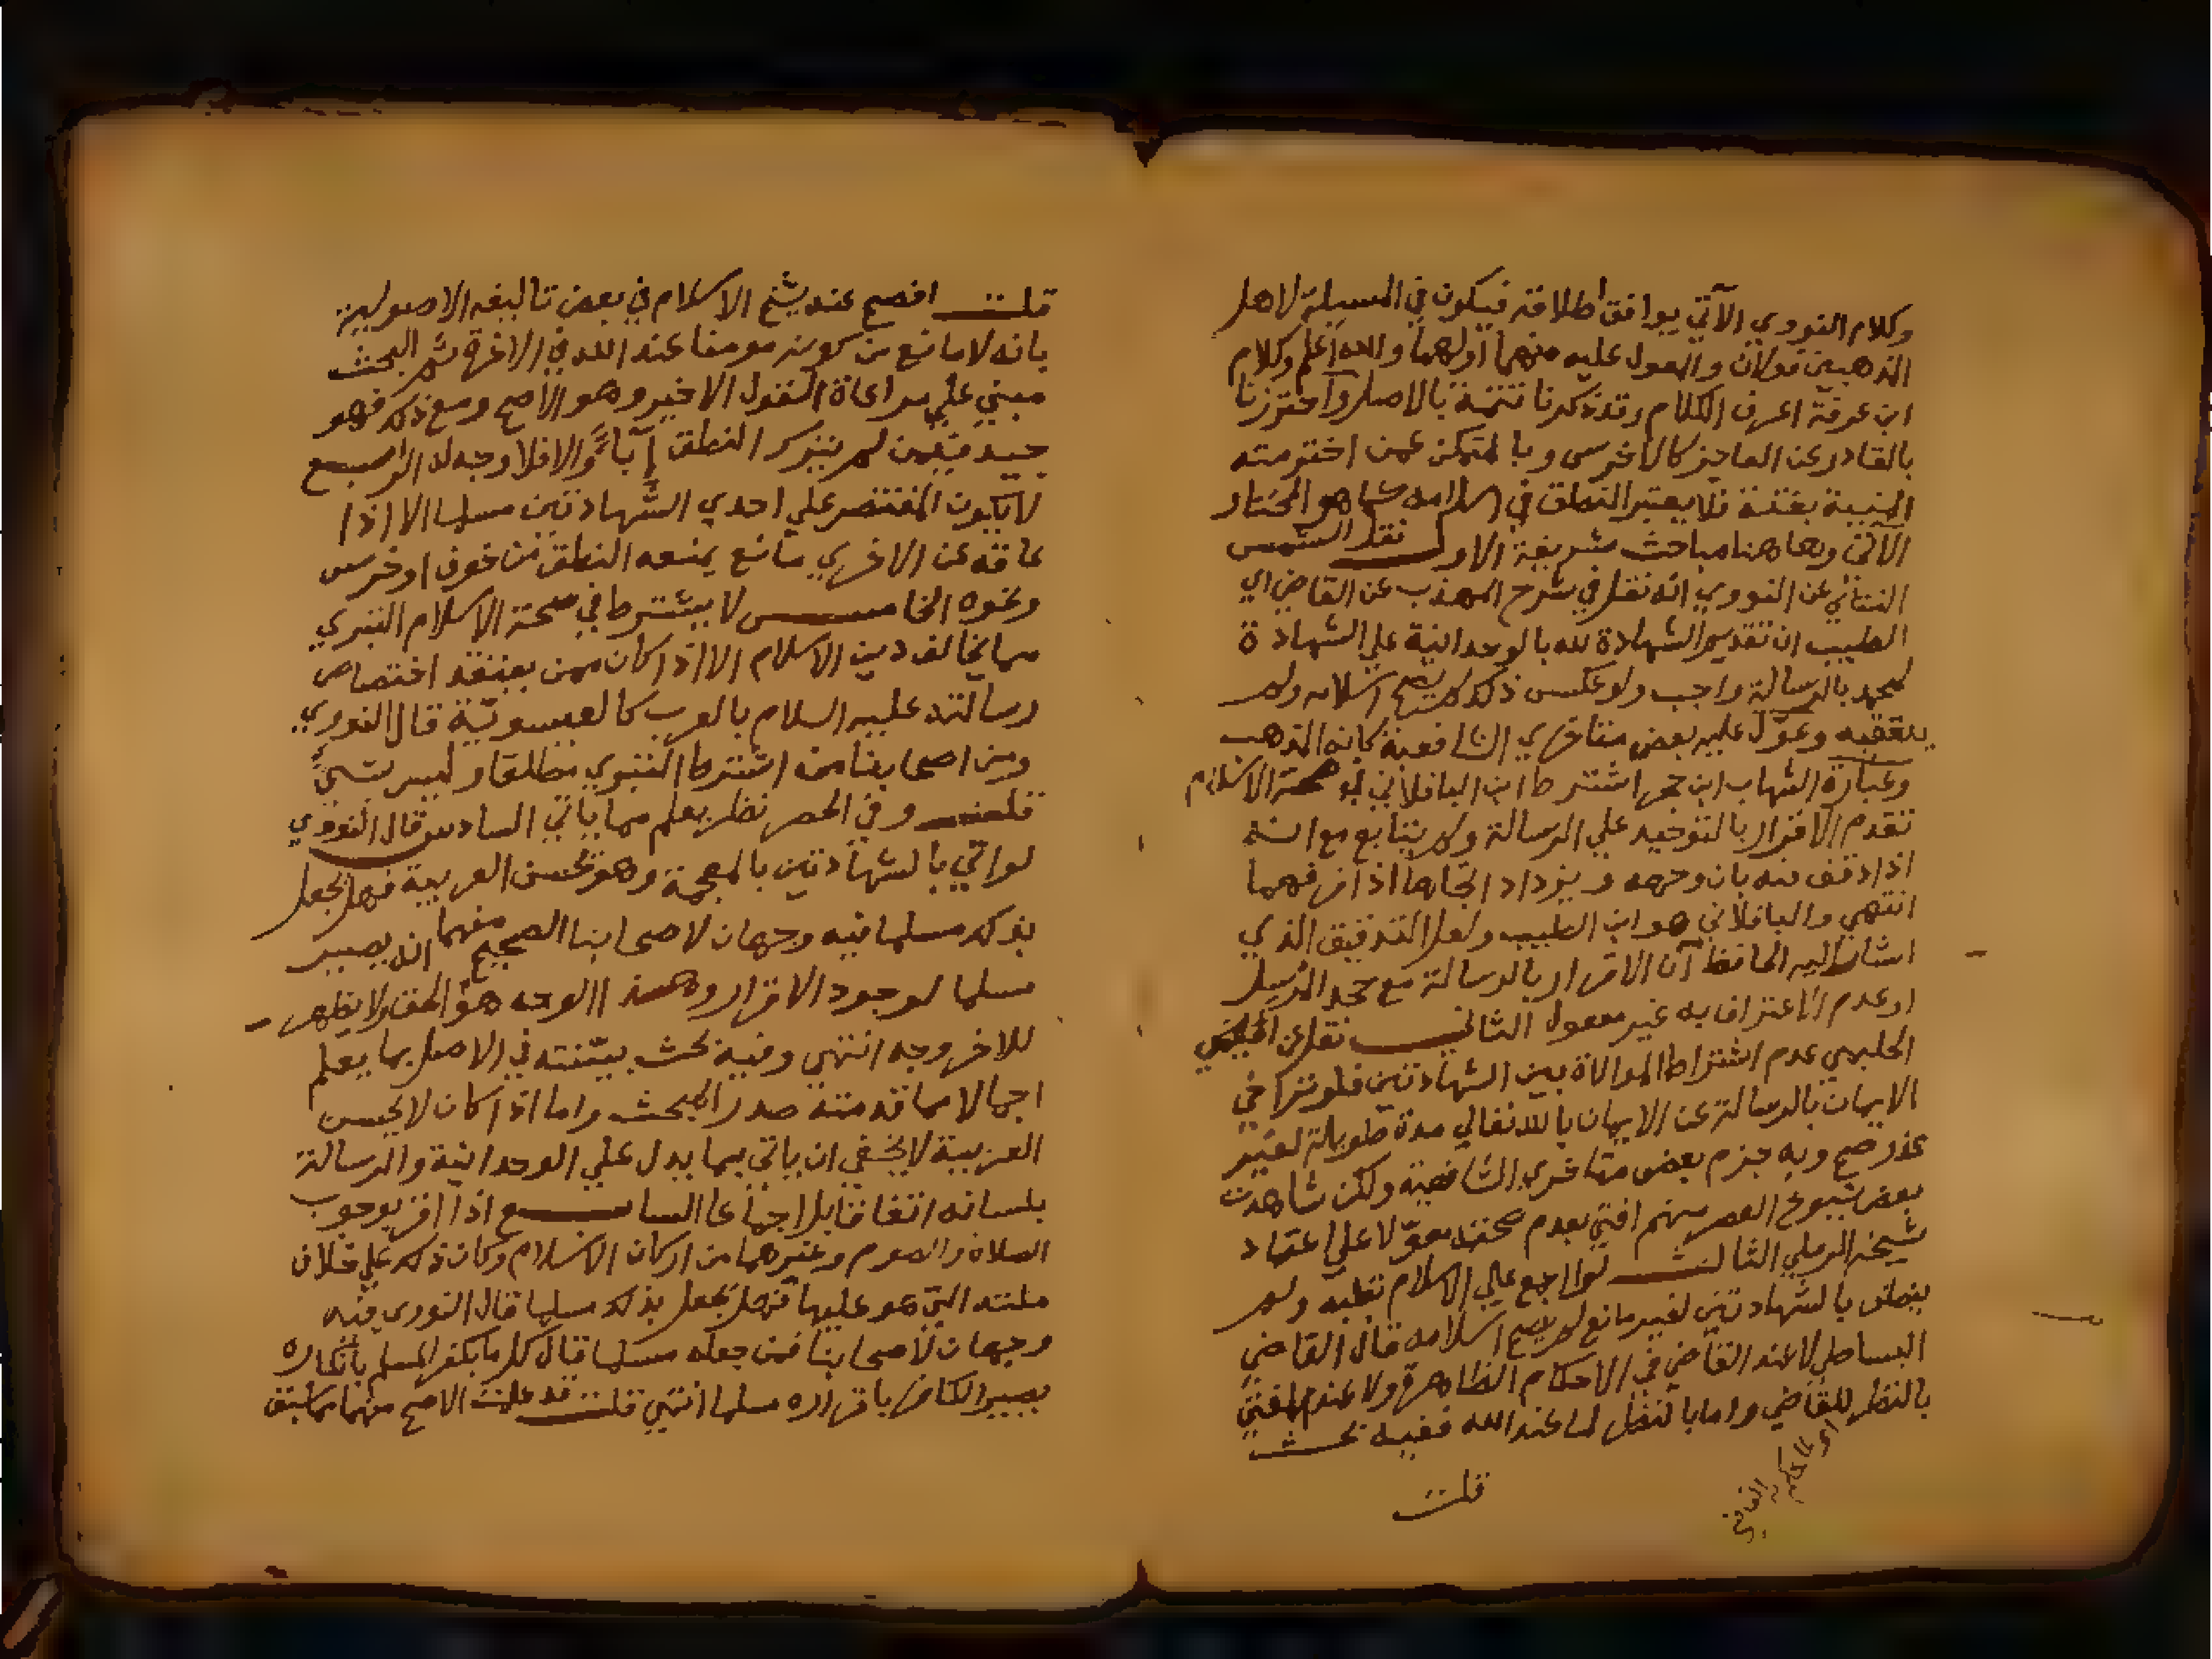 وكلام النووي الآتي يوافق اطلاقه فيكون في المسيلة لاهل
المذهبين قولان والمعول عليه منهما اولهما والله أعلم وكلام
ابن عرفة اعرف الكلام وقد ذكرنا تتمة بالاصل واحترزنا
بالقادر عن العاجز كالاخرس وبالمتمكن عمن اخترمته
المنيية بغتة فلا يعتبر النطق في اسلامه كما هو المختار
الآتي وهاهنا مباحث شريفة الاول نقل الشمس
التتائي عن النووي انه نقل في شرح المهذب عن القاضي ابي
الطيب ان تقديم الشهادة لله بالوحدانية علي الشهادة
لمحمد بالرسالة واجب ولو عكس ذلك لم يصح اسلامه ولم
يتعقبه وعوّل عليه بعض متاخري الشافعية كانه المذهب
وعبارة الشهاب ابن حجر اشترط ابن الباقلاني في صحة الاسلام
تقدم الاقرار بالتوحيد علي الرسالة ولم يتابع مع انه
اذا دقق فيه بان وجهه ويزداد اتجاها اذا فرقهما
انتهي والباقلاني هو ابن الطيب ولعل التدقيق الذي
اشار اليه الحافظ أن الاقرار بالرسالة مع جحد المرسل
او عدم الاعتراف به غير معقول الثاني نقل عن
الحليمي عدم اشتراط الموالاة بين الشهادتين فلو تراخي
الايمان بالرسالة عن الايمان بالله تعالي مدة طويلة لغير
عذر صح وبه جزم بعض متاخري الشافعية ولكن شاهدت
بعض شيوخ العصر منهم افتي بعدم صحته معوّلا علي اعتماد
شيخه الرملي الثالث لو اجمع علي الاسلام بقلبه ولم
ينطق بالشهادتين لغير مانع لم يصح اسلامه قال القاضي
البساطي لا عند القاضي في الاحكام الظاهرة ولا عند المفتي
بالنظر للقاضي واما بالنظر لما عند الله ففيه بحث
قلت
قلت افصح عنه شيخ الاسلام في بعض تاليفه الاصولية
بانه لا مانع من كونه مومنا عند الله في الاخرة ثم البحث
مبني علي مراعاة القول الاخير وهو الاصح ومع ذلك فهو
جيد فيمن لم يترك النطق إباءً والا فلا وجه له الرابع
لا يكون المقتصر علي احدي الشهادتين مسلما الا اذا
عاقه عن الاخري مانع يمنعه النطق من خوف او خرس
ونحوه الخامس لا يشترط في صحة الاسلام التبري
مما يخالف دين الاسلام الا اذا كان ممن يعتقد اختصاص
رسالته عليه السلام بالعرب كالعيسوية قال النووي
ومن اصحابنا من اشترط التبري مطلقا وليس بشيء
قلت وفي الحصر نظر يعلم مما ياتي السادس قال النووي
لو اتي بالشهادتين بالعجمية وهو يحسن العربية فهل يجعل
بذلك مسلما فيه وجهان لاصحابنا الصحيح منهما انه يصير
مسلما لوجود الاقرار وهذا الوجه هو الحق ولا يظهر
للاخر وجه انتهي وفيه بحث بيّنته في الاصل بما يعلم
اجمالا مما قدمته صدر المبحث واما اذا كان لا يحسن
العربية لا يخفي ان ياتي بما يدل علي الوحدانية والرسالة
بلسانه اتفاقا بل اجماعا السابع اذا اقر بوجوب
الصلاة والصوم وغيرهما من اركان الاسلام وكان ذلك علي خلاف
ملته التي هو عليها فهل يجعل بذلك مسلما قال النووي فيه
وجهان لاصحابنا فمن جعله مسلما قال كل ما يكفر المسلم بانكاره
يصير الكافر باقراره مسلما انتهي قلت قد علمت الاصح منهما مما سبق